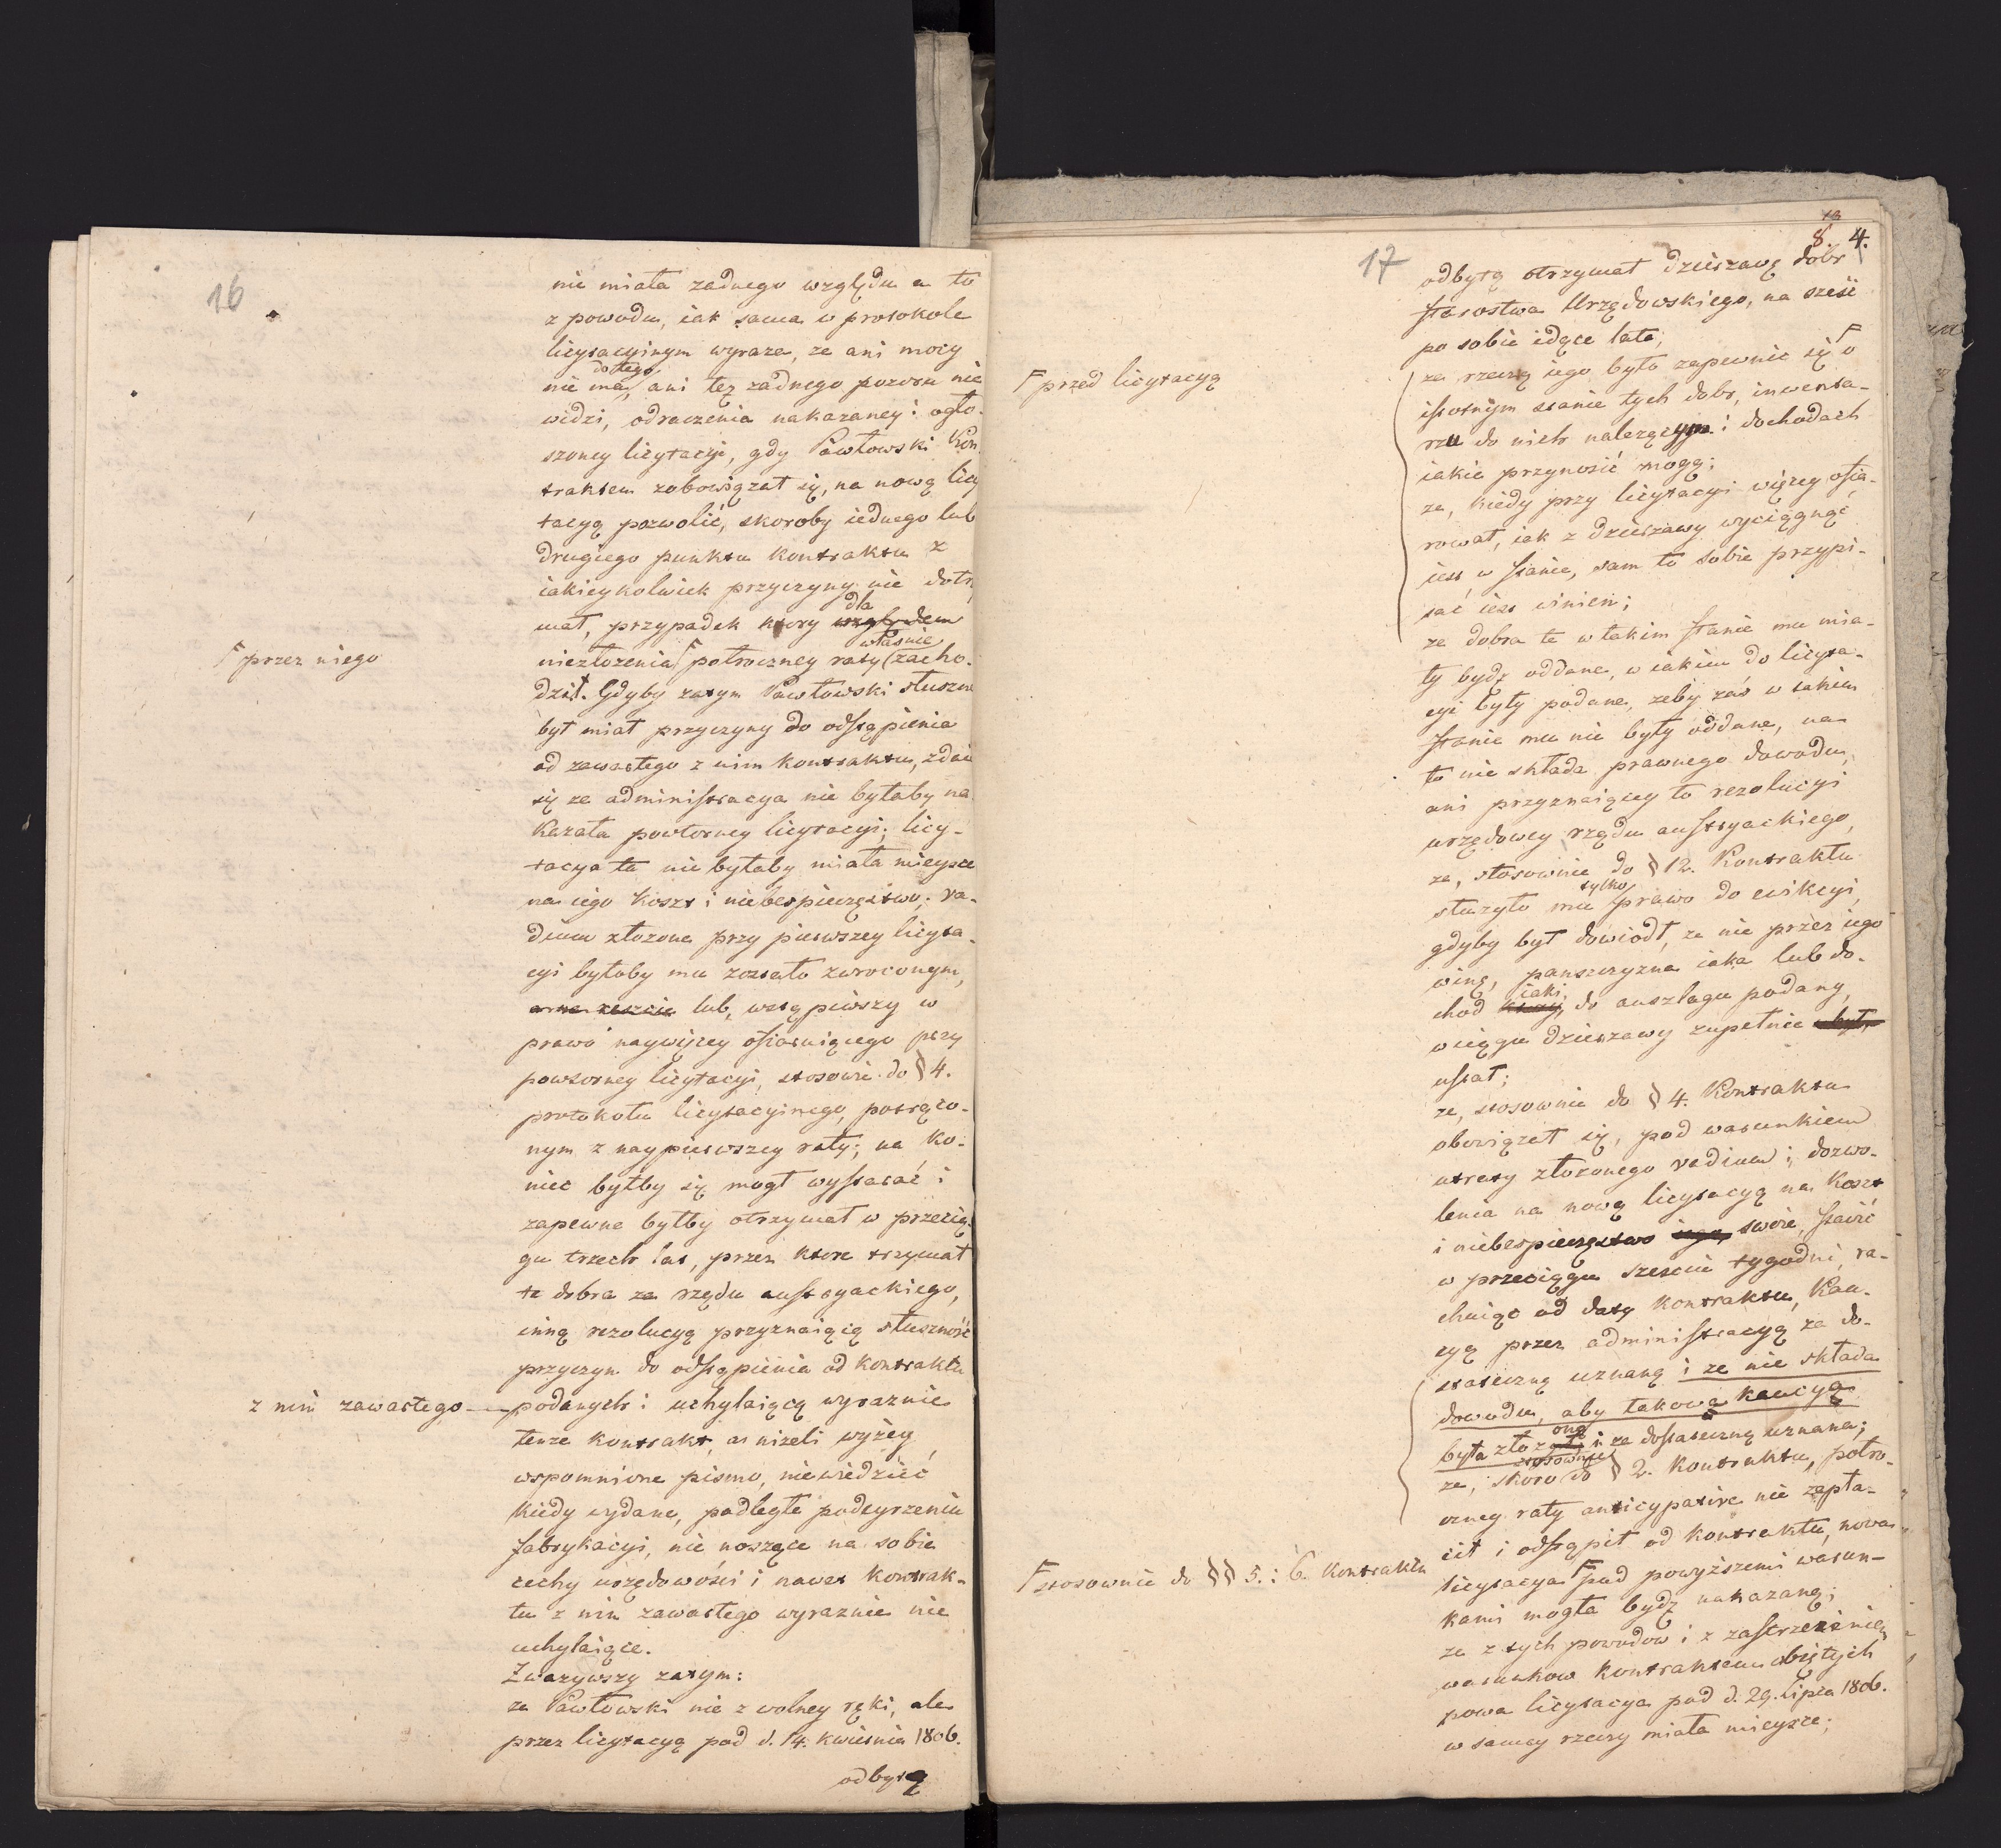 16
nie miała żadnego względu a to
z powodu, iak sama w protokole
licytacyinym wyraża, że ani mocy
do tego
nie ma, ani też żadnego pozoru nie
widzi, odroczenia nakazaney i ogło-
szoney licytacyi, gdy Pawłowski Kon-
traktem zobowiązał się, na nową licy
tacyą pozwolić, skoroby iednego lub
drugiego punktu kontraktu z
iakieykolwiek przyczyny nie dotrzy
dla
mał, przypadek ktory względem
właśnie
Γ przez niego
niezłożenia Γ połroczney raty (zacho-
dził. Gdyby zatym Pawłowski słuszne
był miał przyczyny do odstąpienia
od zawartego z nim kontraktu, zdaie
się że administracya nie byłaby na
kazała powtorney licytacyi; licy-
tacya ta nie byłaby miała mieysce
na iego koszt i niebespieczęstwo; va-
dium złożone przy pierwszey licyta-
cyi byłoby mu zostało zwroconym,
lub, wstąpiwszy w
prawo naywięcey ofiaruiącego przy
powtorney licytacyi, stosowie do § 4.
protokołu licytacyinego, potrąco-
nym z naypierwszey raty; na ko-
niec byłby się mogł wystarać i
zapewne byłby otrzymał w przecią-
gu trzech lat, przez ktore trzymał
te dobra za rządu austryackiego,
inną rezolucyą przyznaiącą słuszność
przyczyn do odstąpienia od kontraktu
z nim zawartego
podanych i uchylaiącą wyraźnie
tenże kontrakt, a niżeli wyżey
wspomnione pismo, niewiedzieć
kiedy wydane, podległe podeyrzeniu
fabrykacyi, nie noszące na sobie
cechy urzędowości i nawet kontrak-
tu z nim zawartego wyraźnie nie
uchylaiące.
Zważywszy zatym:
że Pawłowski nie z wolney ręki, ale
przez licytacyą pod d. 14. kwietnia 1806.
odbytą
17
8. 4.
odbytą otrzymał dzierżawę dobr
starostwa Urzędowskiego, na sześć
po sobie idące lata;
Γ przed licytacyą
że rzeczą iego było zapewnić się Γ o
istotnym stanie tych dobr, inwenta-
rzu do nich należącym i dochodach
iakie przynosić mogą;
że, kiedy przy licytacyi więcey ofia-
rował, iak z dzierżawy wyciągnąć
iest w stanie, sam to sobie przypi-
sać iest winien;
że dobra te w takim stanie mu mia-
ły bydź oddane, w iakim do licyta-
cyi były podane, żeby zaś w takim
stanie mu nie były oddane, na
to nie składa prawnego dowodu,
ani przyznaiącey to rezolucyi
urzędowey rządu austryackiego,
że, stosownie do § 12. Kontraktu
tylko
służyło mu prawo do ewikcyi,
gdyby był dowiodł, że nie przez iego
winę, pańszczyzna iaka lub do-
iaki
chod ktory, do anszlagu podany,
w ciągu dzierżawy zupełnie był
ustał;
że, stosownie do § 4. Kontraktu
obowiązał się, pod warunkiem
utraty złożonego vadium i dozwo-
lenia na nową licytacyą na koszt
i niebespieczęstwo iego, swoie, stawić
w przeciągu sześciu tygodni, ra-
chuiąc od daty kontraktu, kau-
cyą przez administracyą za do-
stateczną uznaną i że nie składa
dowodu, aby takowa kaucya
oną
była złożona i za dostateczną uznana;
stosownie
że, skoro do § 2. kontraktu, połro-
czney raty anticypative nie zapła-
cił i odstąpił od kontraktu, nowa
Γ stosownie do §§ 5. i 6. kontraktu
licytacya Γ pod powyższemi warun-
kami mogła bydź nakazaną;
że z tych powodow i z zastrzeżeniem
warunkow kontraktem obiętych
nowa licytacya pod d. 29. lipca 1806.
w samey rzeczy miała mieysce;